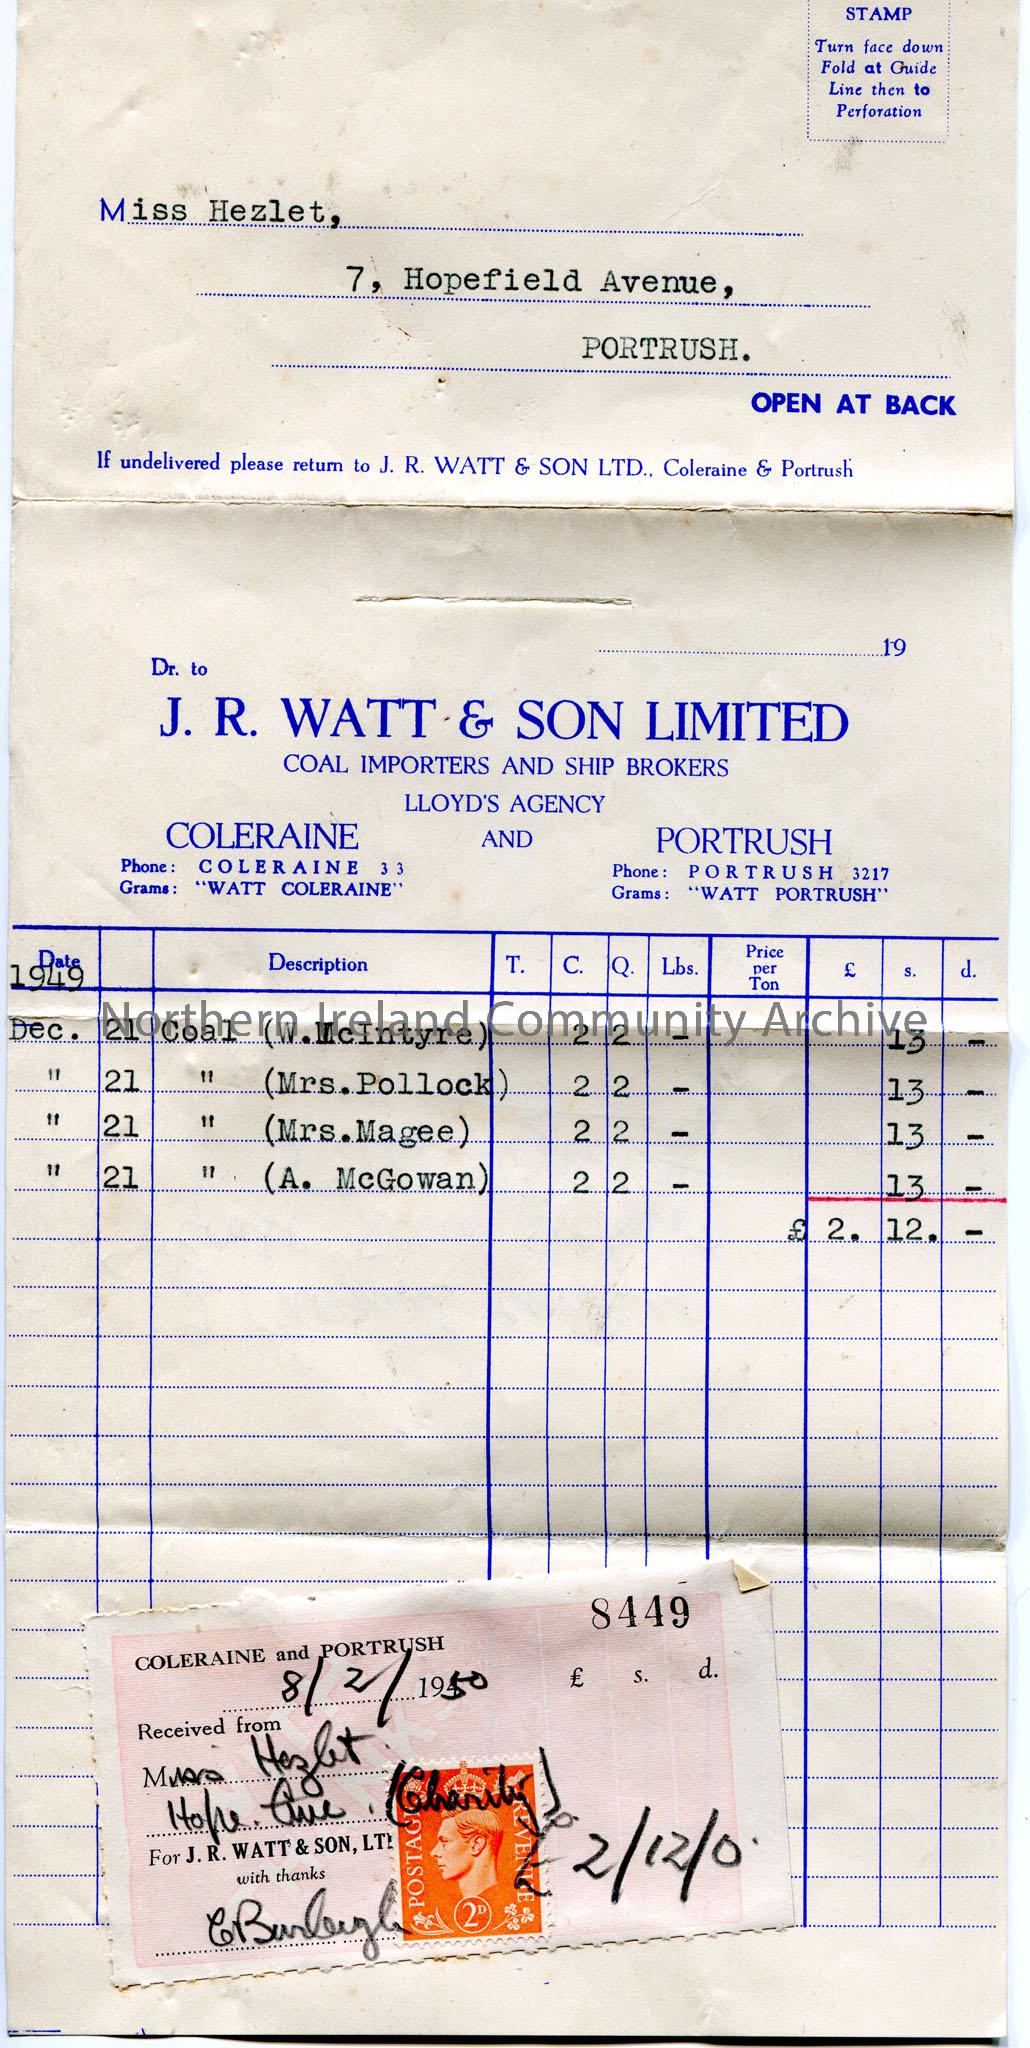 STAMP
Turn face down
Fold at Guide
Line then to
Perforation
Miss Hezlet,
7, Hopefield Avenue,
PORTRUSH.
OPEN AT BACK
If undelivered please return to J. R. WATT & SON LTD., Coleraine & Portrush
19
Dr. to
J. R. WATT & SON LIMITED
COAL IMPORTERS AND SHIP BROKERS
LLOYD'S AGENCY
COLERAINE AND PORTRUSH
Phone: COLERAINE 33 Phone: PORTRUSH 3217
Grams: "WATT COLERAINE" Grams: "WATT PORTRUSH"
Date Description T. C. Q. Lbs. Price per Ton £ s. d.
1949
Northern Ireland Community Archive
Dec. 21 Coal (W.McIntyre) 2 2 - 13 -
" 21 " (Mrs.Pollock) 2 2 - 13 -
" 21 " (Mrs.Magee) 2 2 - 13 -
" 21 " (A. McGowan) 2 2 - 13 -
£ 2. 12. -
8449
COLERAINE and PORTRUSH
8/2/1950 £ s. d.
Received from
Miss Hezlet.
Hope. Ave. (Charity)
For J. R. WATT & SON, LT
with thanks
£ 2/12/0.
CBurleigh
POSTAGE REVENUE
2D